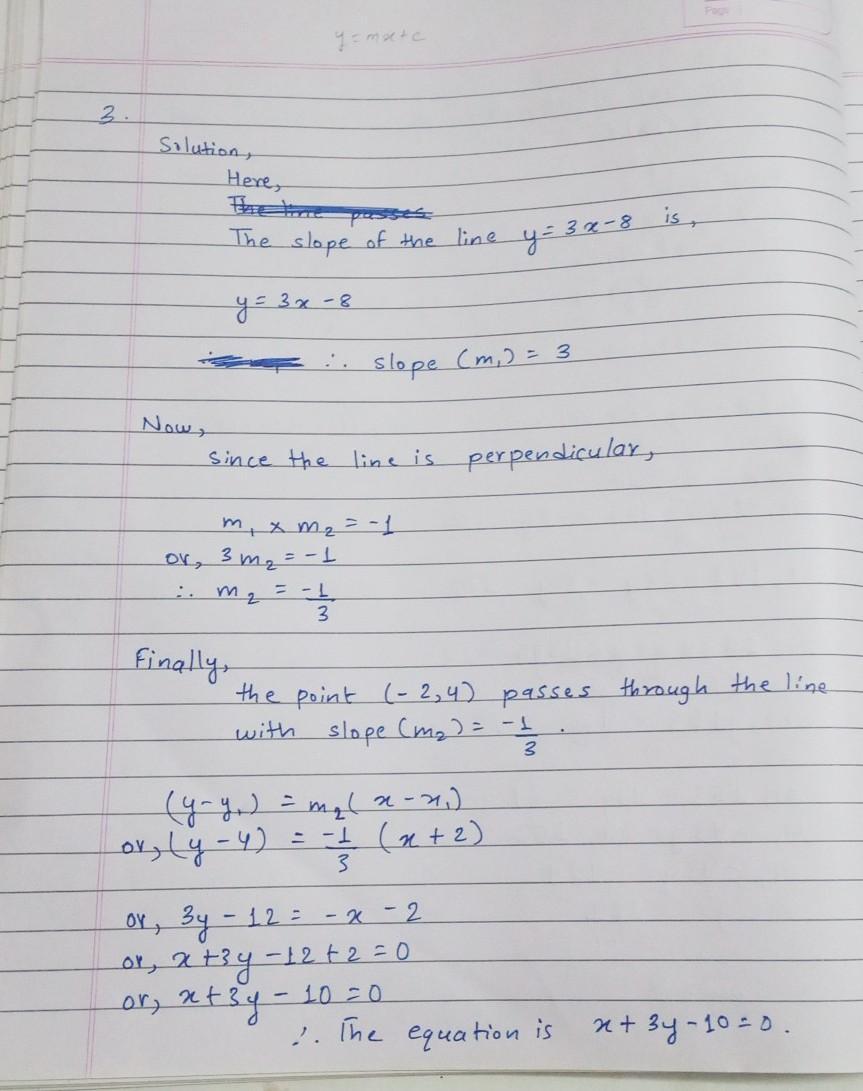 Page
y=mx+c
3.
Solution,
Here,
The line passes
The slope of the line y=3x-8 is,
y=3x-8
∴ slope (m₁) = 3
Now,
since the line is perpendicular,
m₁ × m₂ = -1
or, 3m₂ = -1
∴ m₂ = -1/3
Finally,
the point (-2,4) passes through the line
with slope (m₂) = -1/3.
(y-y₁) = m₂(x-x₁)
or, (y-4) = -1/3 (x+2)
or, 3y-12 = -x-2
or, x+3y-12+2=0
or, x+3y-10=0
∴ The equation is x+3y-10=0.